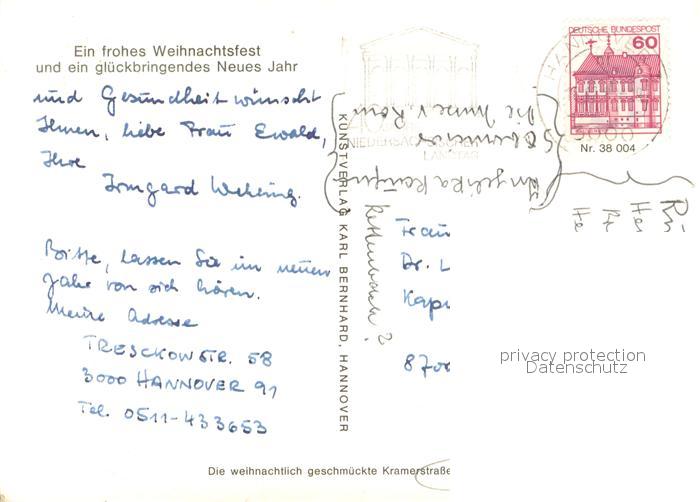 Ein frohes Weihnachtsfest
und ein glückbringendes Neues Jahr
und Gesundheit wünscht
Ihnen, liebe Frau Ewald,
Ihre
Irmgard Wehring.
Bitte, lassen Sie im neuen
Jahr von sich hören.
Meine Adresse
TRESCKOWSTR. 58
3000 HANNOVER 91
Tel. 0511-433653
KUNSTVERLAG KARL BERNHARD, HANNOVER
DEUTSCHE BUNDESPOST
60
Nr. 38 004
NIEDERSÄCHSISCHER
LANDTAG
Angelika
Frau
Dr. L
8700
privacy protection
Datenschutz
Die weihnachtlich geschmückte Kramerstraße